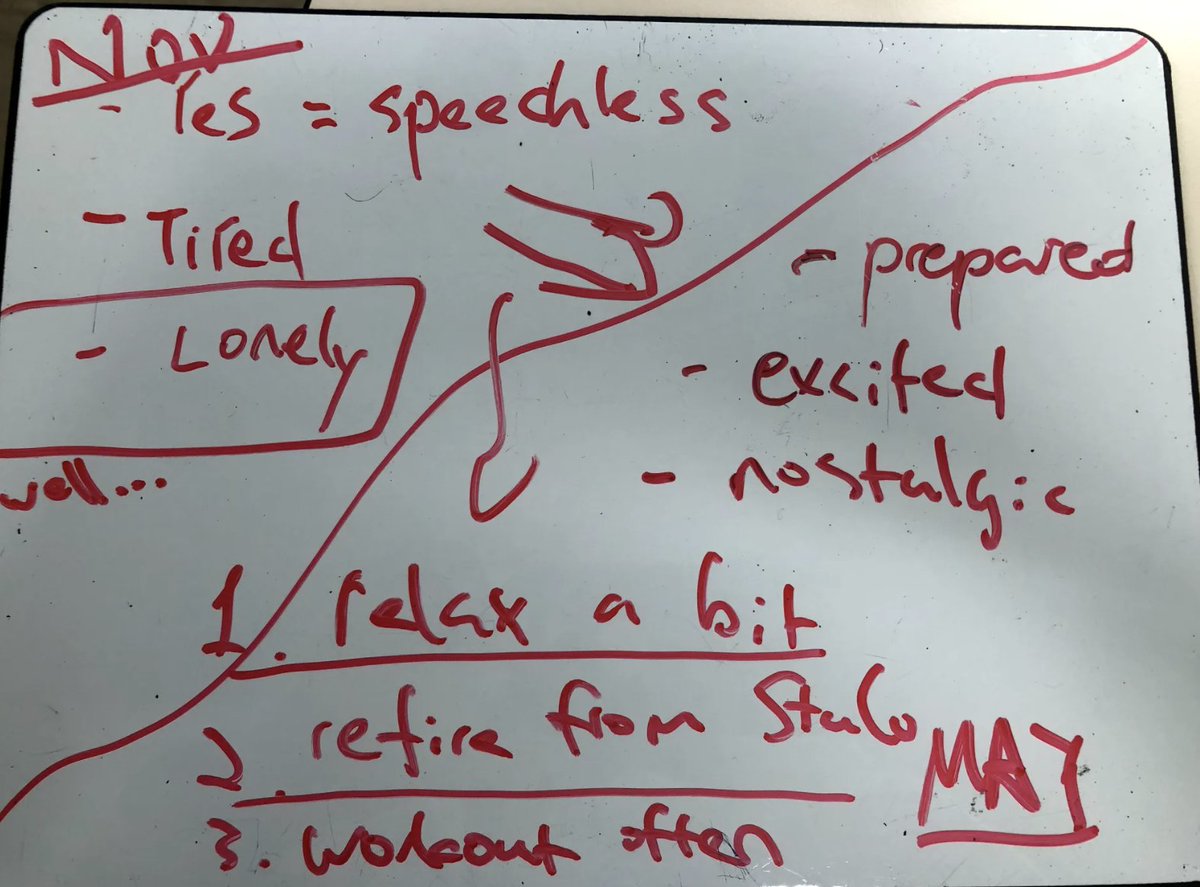 Nov
- Yes = speechless
- Tired
- Lonely
well...
- prepared
- excited
- nostalgic
1. relax a bit
2. retire from StuCo
3. workout often
MAY